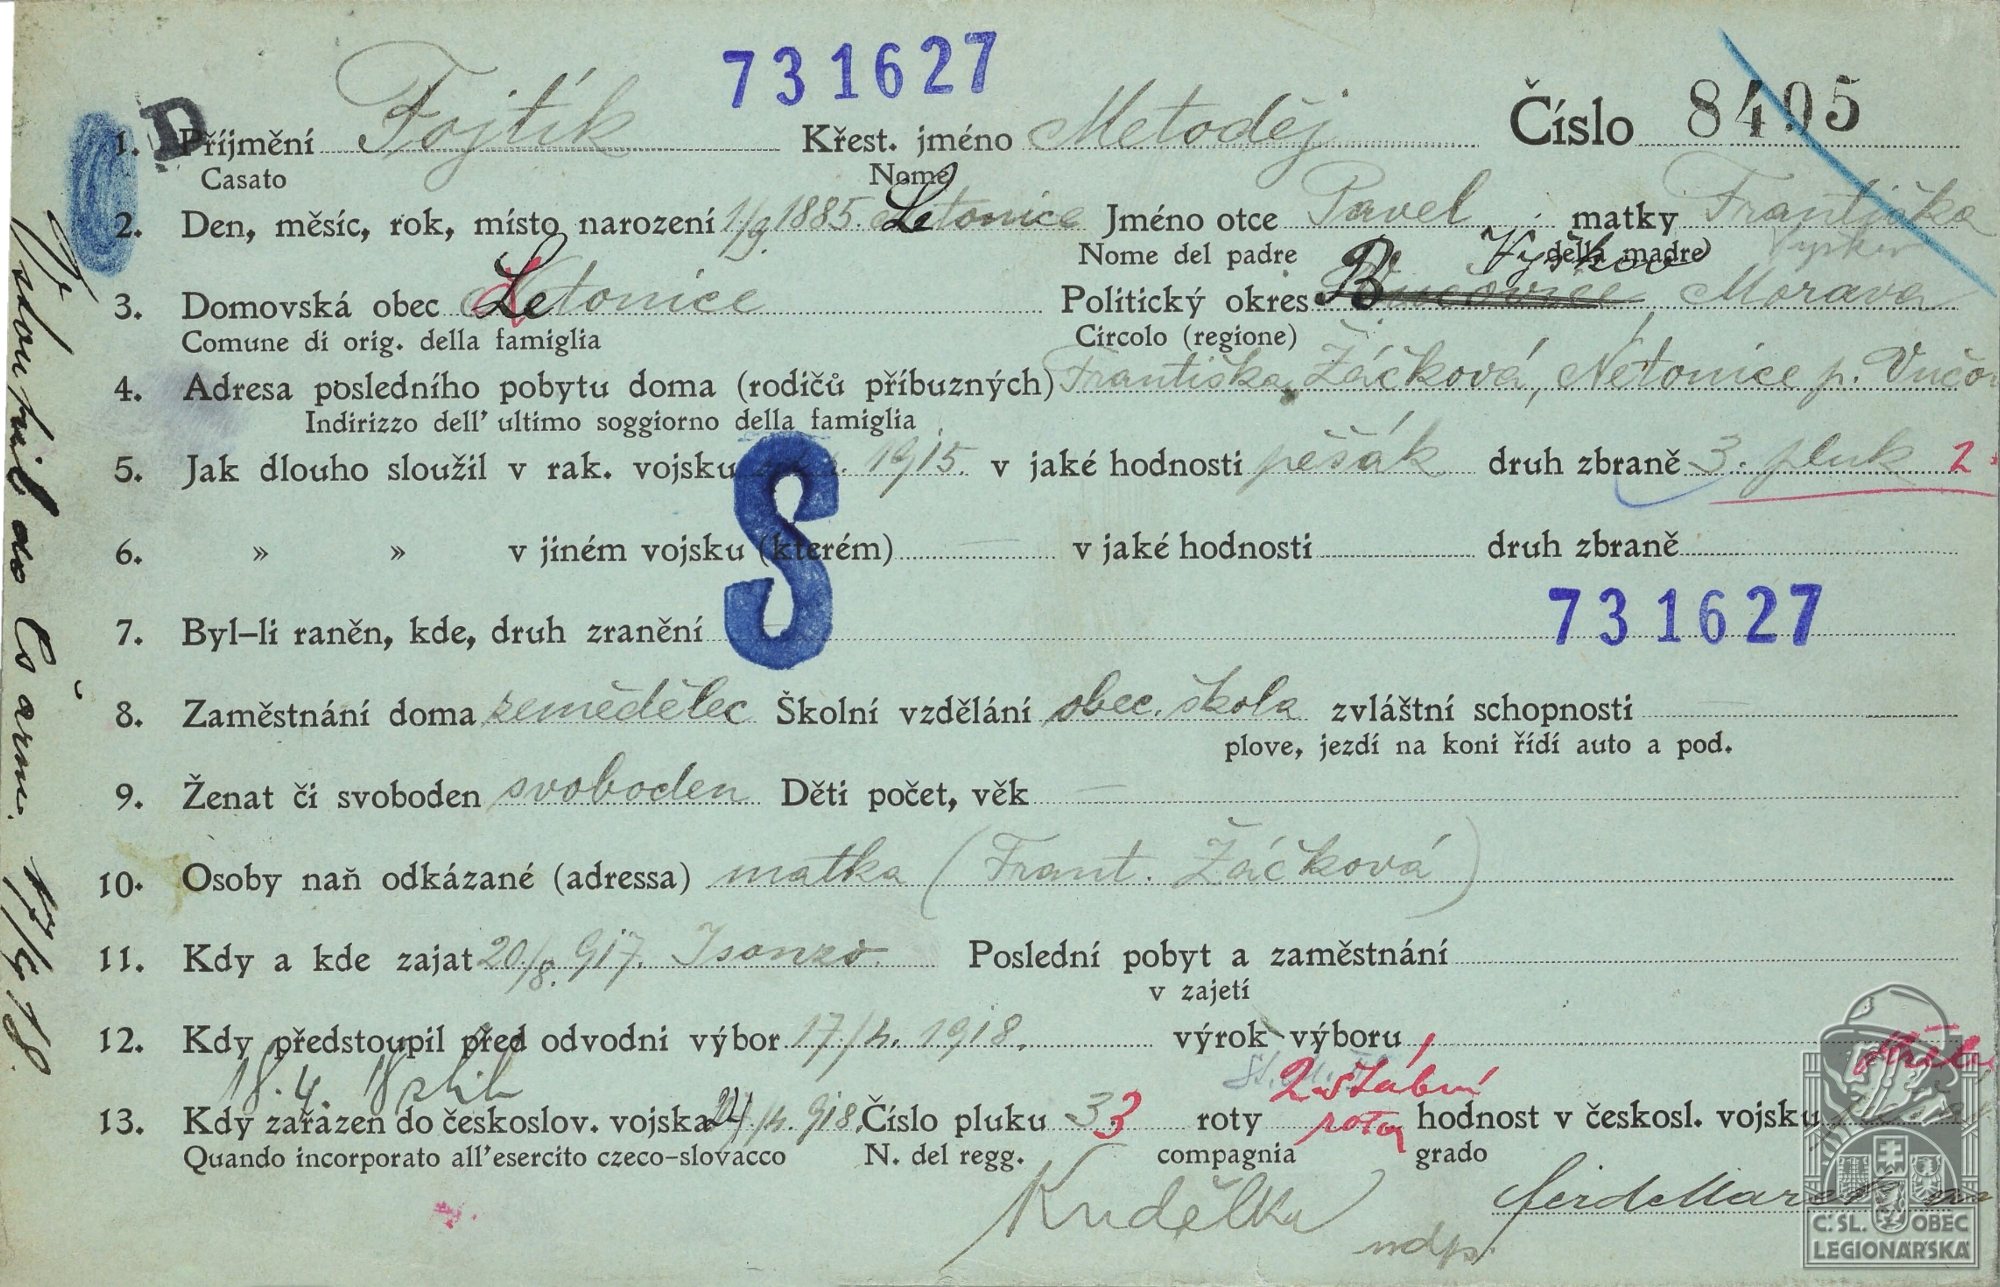 731627
D
1. Příjmení Fojtík Křest. jméno Metoděj Číslo 8495
Casato Nome
2. Den, měsíc, rok, místo narození 1/9. 1885. Letonice Jméno otce Pavel matky Františka
Nome del padre della madre
Vyškov Vyškov
3. Domovská obec Letonice Politický okres Bučovice Morava
Comune di orig. della famiglia Circolo (regione)
4. Adresa posledního pobytu doma (rodičů příbuzných) Františka Žáčková, Nětonice p. Vučov
Indirizzo dell' ultimo soggiorno della famiglia
5. Jak dlouho sloužil v rak. vojsku 1915. v jaké hodnosti pěšák druh zbraně 3. pluk 2
S
6. » » v jiném vojsku (kterém) — v jaké hodnosti druh zbraně
731627
7. Byl-li raněn, kde, druh zranění
8. Zaměstnání doma zemědělec Školní vzdělání obec. škola zvláštní schopnosti —
plove, jezdí na koni řídí auto a pod.
9. Ženat či svoboden svoboden Děti počet, věk —
10. Osoby naň odkázané (adressa) matka (Frant. Žáčková)
11. Kdy a kde zajat 20/8. 917. Isonzo Poslední pobyt a zaměstnání
v zajetí
12. Kdy předstoupil před odvodní výbor 17/4. 1918. výrok výboru
18. 4. 18 slib 2. štábní
13. Kdy zařazen do českoslov. vojska 24/4. 918. Číslo pluku 33 roty rota hodnost v českosl. vojsku
Quando incorporato all'esercito czeco-slovacco N. del regg. compagnia grado
Kudělka
mdp.
Vstoupil do Čs arm. 17/4 18.
Č.SL. OBEC
LEGIONÁŘSKÁ